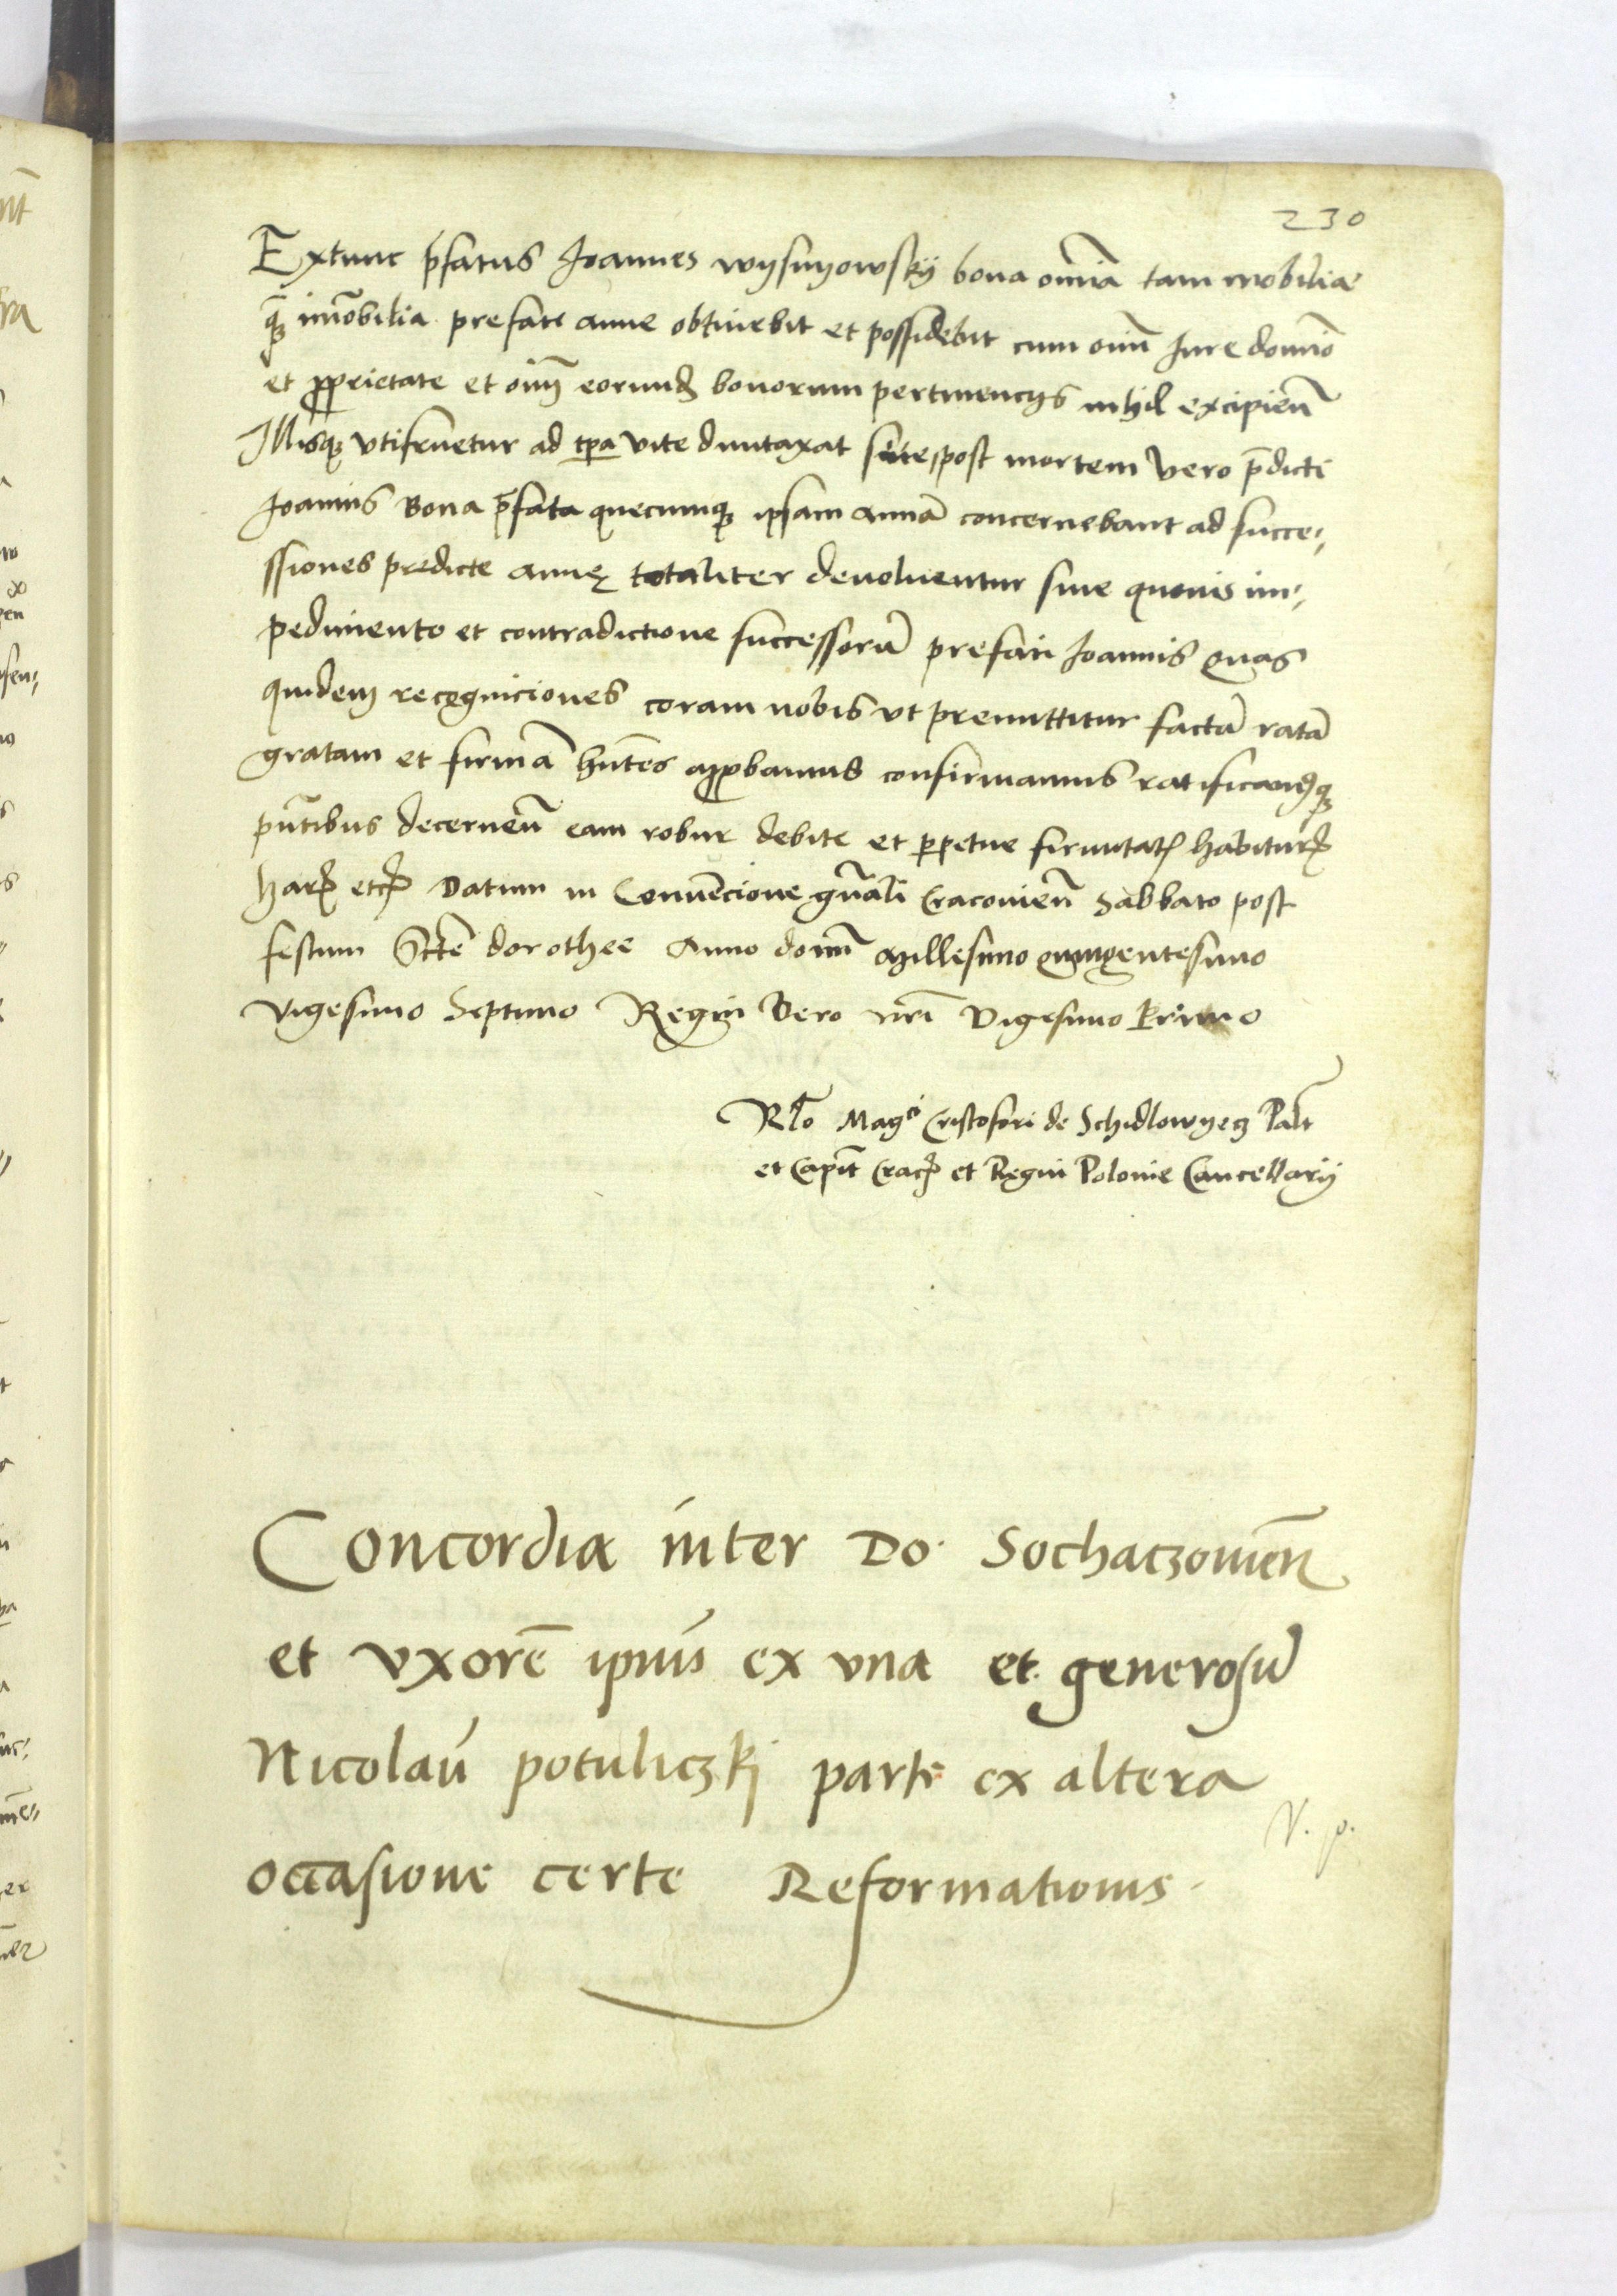 230
Extunc p̄fatus Ioannes wysnyowskÿ bona om̄ia tam mobilia
qz̄ im̄obilia prefate anne obtinebit et possidebit cum om̄i Iure domīo
et pprietate et om̄ib eorundē bonorum pertinencijs nihil excipien̄
Illisqz vtifruetur ad tp̄a vite duntaxat suae, post mortem vero p̄dicti
Ioannis Bona p̄fata quecumqz ipsam annā concernebant ad succe„
ssiones predicte annę totaliter deuoluentur sine quouis im„
pedimento et contradictione successorū prefati Ioannis Quas
quidem recogniciones coram nobis vt premittitur factā ratā
gratam et firmā hn̄tes approbamus confirmamus ratificamqz
pn̄tibus decernen̄ eam robur debite et ppetue firmitatis habiturā
harꝝ etcꝝ Datum in Conuēncione gn̄ali Cracouien̄ Sabbato post
festum Sctē dorothee Anno domī Millesimo quingentesimo
vigesimo Septimo Regni Vero nrī Vigesimo Primo
Rlō Magci Cristofori de Schidlowyecz Palt̄
et Capit̄ Cracꝝ et Regni Polonie Cancellarÿ
Concordia inter Do. Sochaczouien̄
et vxorē ip̄ius ex vna et generosū
Nicolaū potuliczkj parte ex altera
occasione certe Reformationis.
V. p.